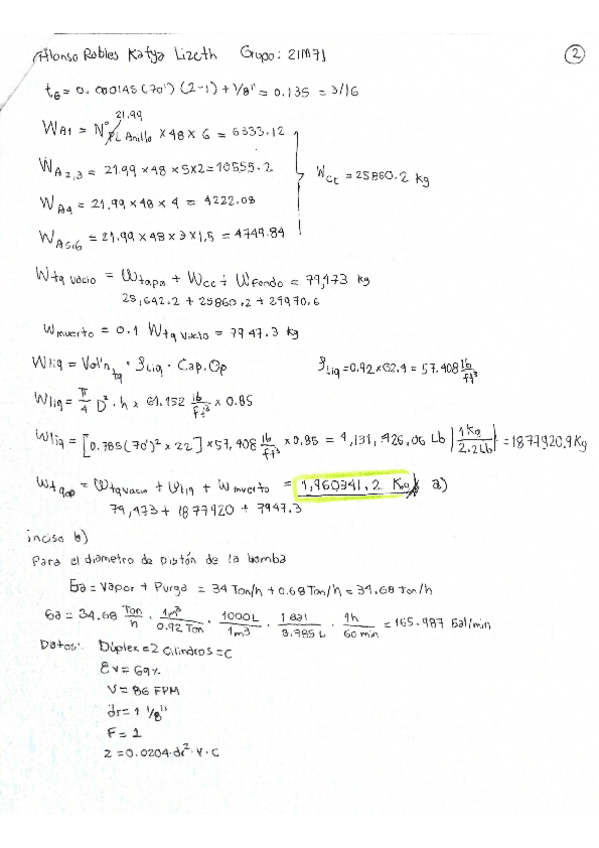 Alonso Robles Katya Lizeth Grupo: 21M71 2
t6 = 0.000145 (70') (2-1) + 1/8" = 0.135 = 3/16
21.99
WA1 = N° PL Anillo × 48 × 6 = 6333.12
WA2,3 = 21.99 × 48 × 5×2 = 10555.2
Wct = 25860.2 kg
WA4 = 21.99 × 48 × 4 = 4222.08
WA5,6 = 21.99 × 48 × 3 × 1.5 = 4749.84
Wtq vacio = Wtapa + Wcc + Wfondo = 79,473 kg
25,642.2 + 25860.2 + 27970.6
Wmuerto = 0.1 Wtq vacio = 7947.3 kg
Wliq = Vol'n tq · ρLiq · Cap. Op ρLiq = 0.92 × 62.4 = 57.408 lb/ft³
Wliq = π/4 D² · h × 61.152 lb/ft³ × 0.85
Wliq = [0.785 (70')² × 22] × 57,408 lb/ft³ × 0.85 = 4,131,426.06 Lb | 1 Kg/2.2 Lb | = 1877920.9 Kg
Wtqop = Wtqvacio + Wliq + Wmuerto = 1,960341.2 Kg a)
79,473 + 1877920 + 7947.3
inciso b)
Para el diametro de pistón de la bomba
Ga = Vapor + Purga = 34 Ton/h + 0.68 Ton/h = 34.68 ton/h
Ga = 34.68 Ton/h · 1m³/0.92 Ton · 1000L/1m³ · 1 Gal/3.785 L · 1h/60 min = 165.987 Gal/min
Datos: Dúplex = 2 cilindros = C
Ev = 69%
V = 86 FPM
dr = 1 1/8"
F = 1
2 = 0.0204·dr²·V·C